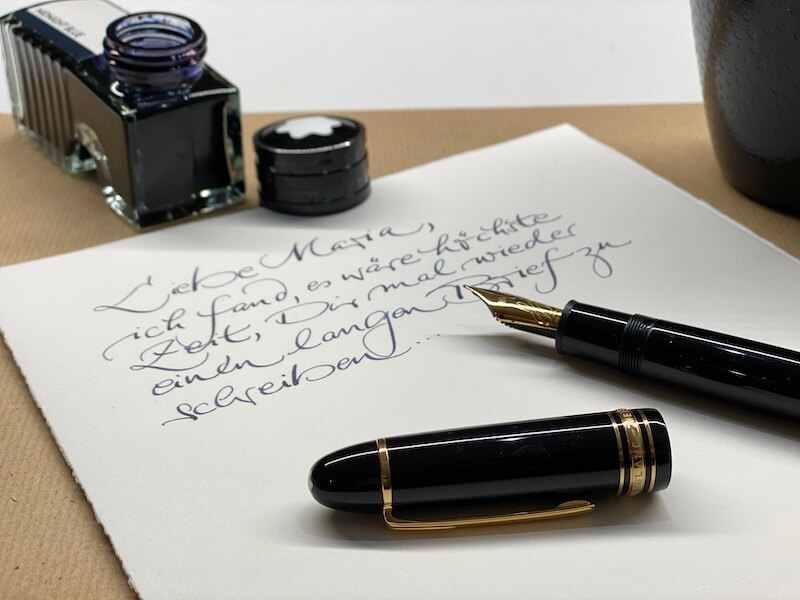 MIDNIGHT BLUE
Liebe Maria,
ich fand, es wäre höchste
Zeit, Dir mal wieder
einen langen Brief zu
schreiben...